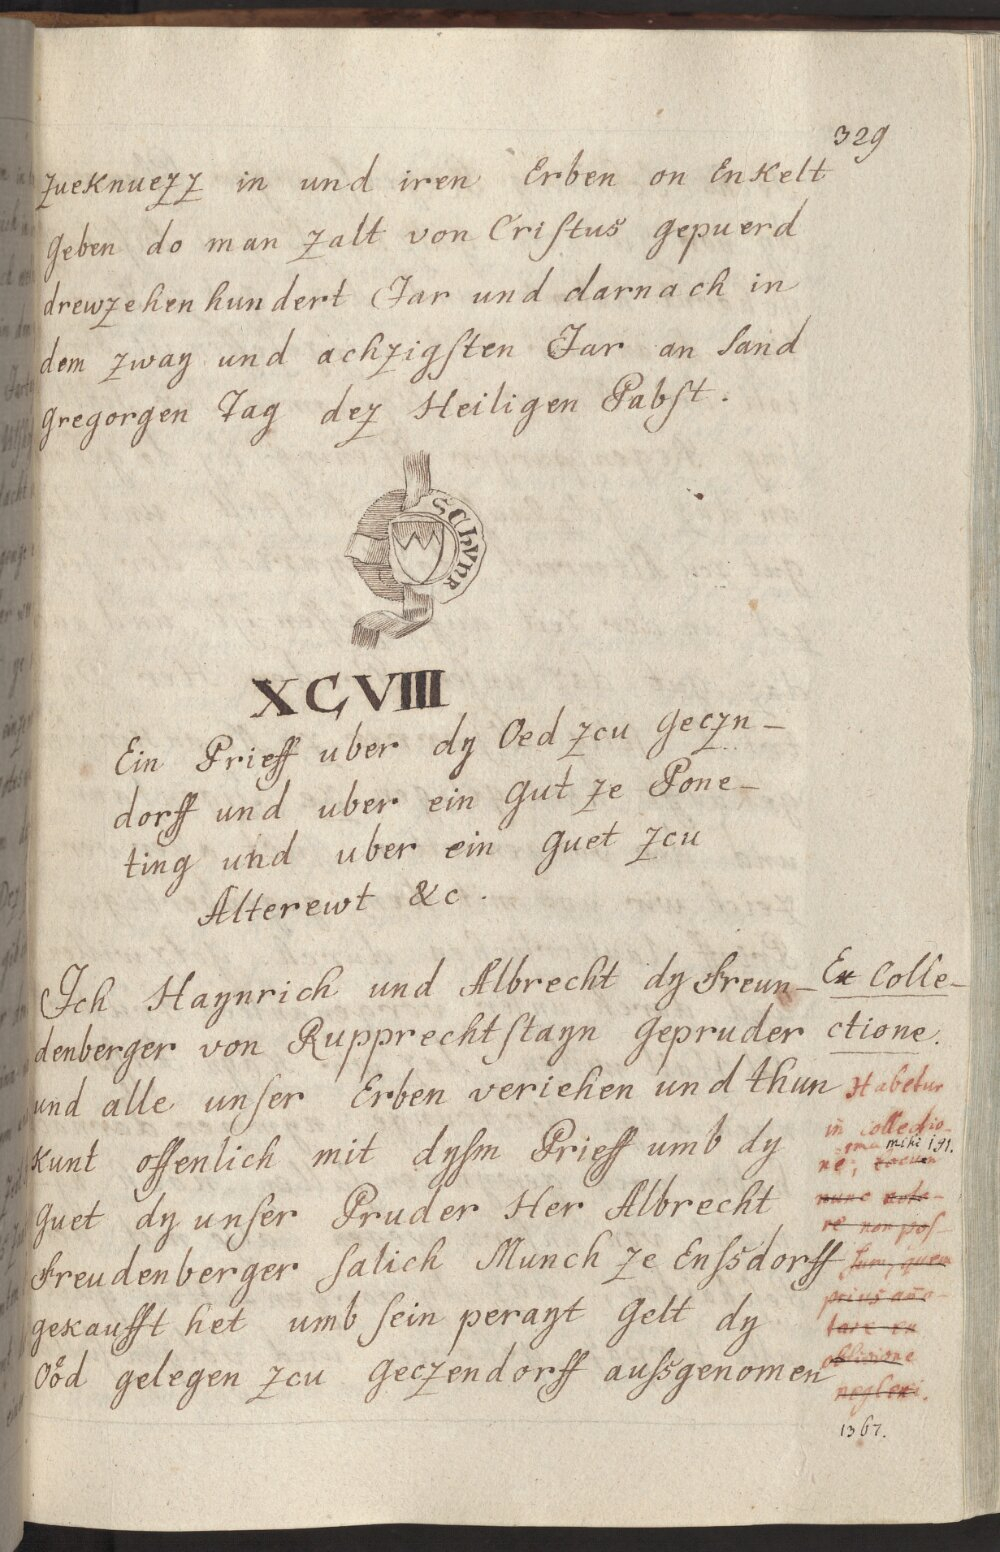 329
zueknuezz in und iren Erben on Enkelt
Geben do man zalt von Cristus gepuerd
drewzehenhundert Jar und darnach in
dem zway und achzigsten Jar an Sand
Gregorgen Tag dez Heiligen Pabst.
SCHVNR
XCVIII
Ein Prieff uber dy Oed zcu Geczn-
dorff und uber ein Gut ze Pone-
ting und uber ein Guet zcu
Alterewt &c.
Ich Haynrich und Albrecht dy Freun-
denberger von Rupprechtstayn Gepruder
und alle unser Erben veriehen und thun
Kunt offenlich mit dysm Prieff umb dy
Guet dy unser Pruder Her Albrecht
Freudenberger salich Munch ze Enssdorff
gekaufft het umb sein perayt Gelt dy
Oöd gelegen zcu Geczendorff aussgenomen
Ex Colle-
ctione.
Habetur
in collectio-
ne, mihi 191.
nunc nota-
re non pos-
sum, quem
prius anno-
tare ex
oblivione
neglexi.
1367.